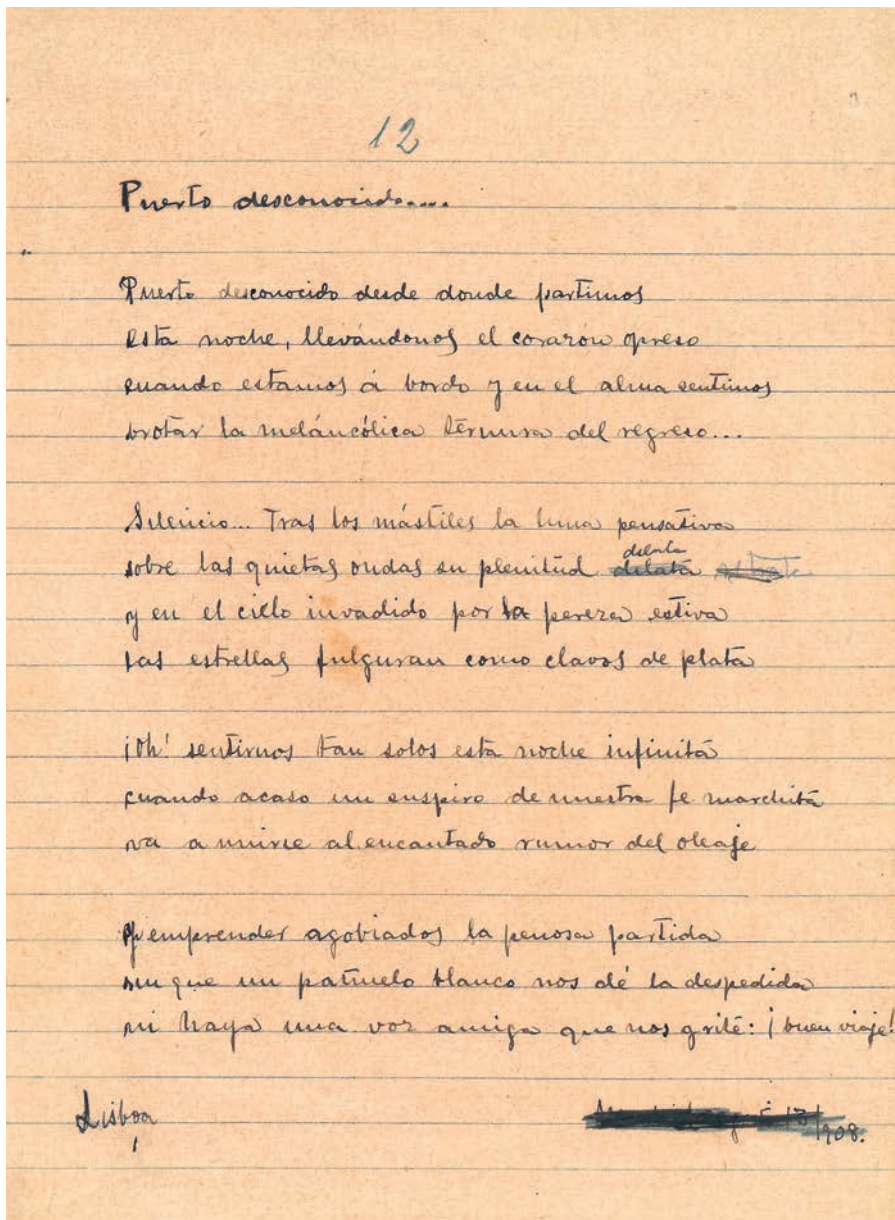 12
Puerto desconocido....
Puerto desconocido desde donde partimos
esta noche, llevándonos el corazón opreso
cuando estamos á bordo y en el alma sentimos
brotar la meláncólica ternura del regreso...
Silencio... Tras los mástiles la luna pensativa
sobre las quietas ondas su plenitud dilata
y en el cielo invadido por la pereza estiva
las estrellas fulguran como clavos de plata
¡Oh! sentirnos tan solos esta noche infinita
cuando acaso un suspiro de nuestra fe marchita
va a unirse al encantado rumor del oleaje
y emprender agobiados la penosa partida
sin que un pañuelo blanco nos dé la despedida
ni haya una voz amiga que nos grite: ¡buen viaje!
Lisboa
1908.